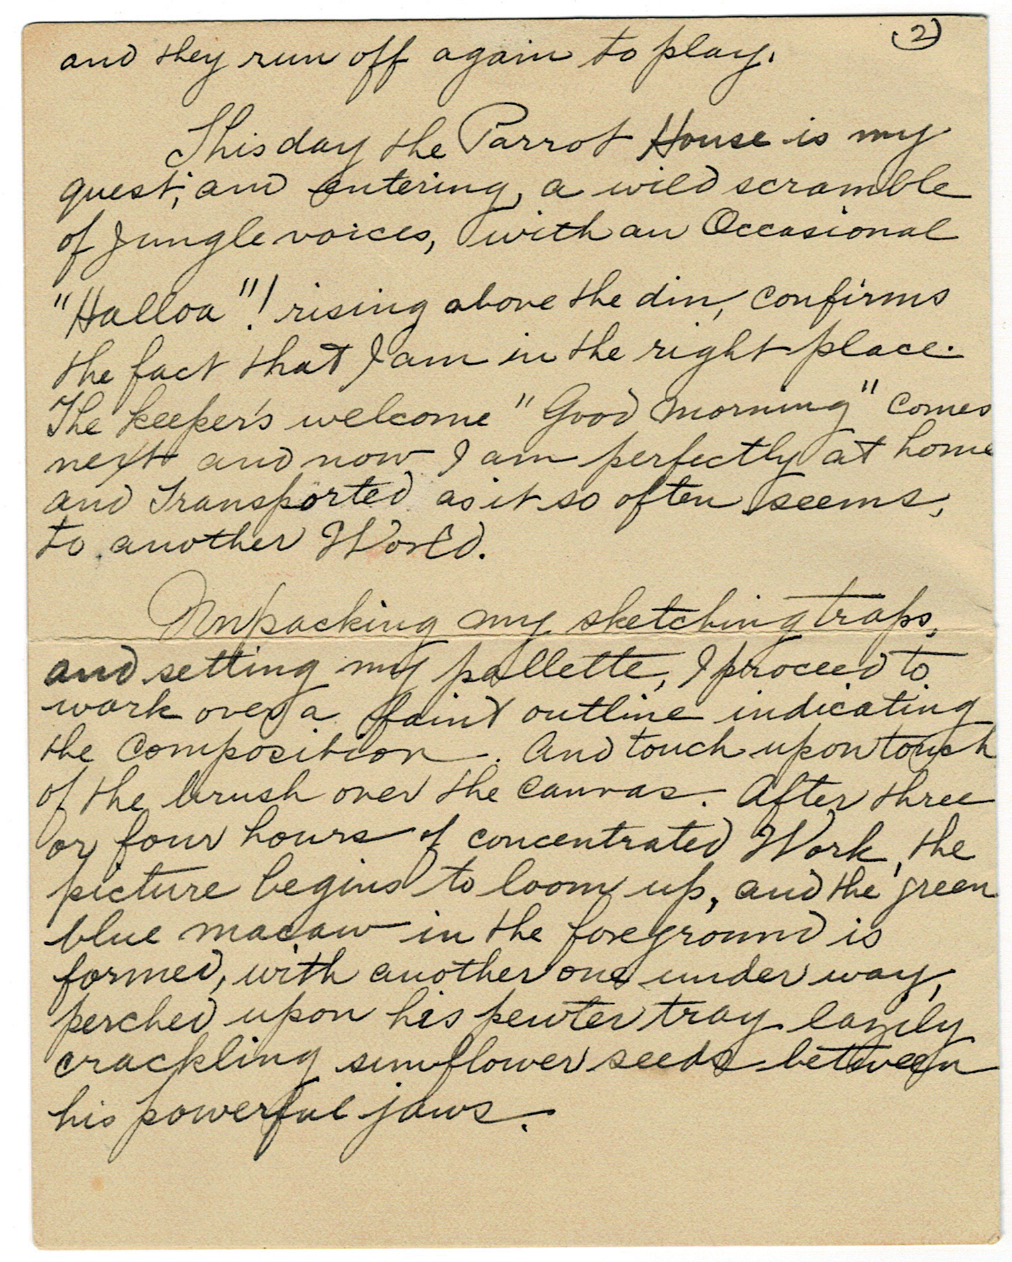 2
and they run off again to play.
This day the Parrot House is my
quest; and entering, a wild scramble
of Jungle voices, with an Occasional
"Halloa"! rising above the din, confirms
the fact that I am in the right place.
The keeper's welcome "Good morning" comes
next and now I am perfectly at home
and Transported as it so often seems,
to another World.
Unpacking my sketching traps,
and setting my pallette, I proceed to
work over a faint outline indicating
the composition. And touch upon touch
of the brush over the canvas. After three
or four hours of concentrated Work, the
picture begins to loom up, and the green
blue macaw in the foreground is
formed, with another one under way,
perched upon his pewter tray lazily
crackling sunflower seeds between
his powerful jaws.